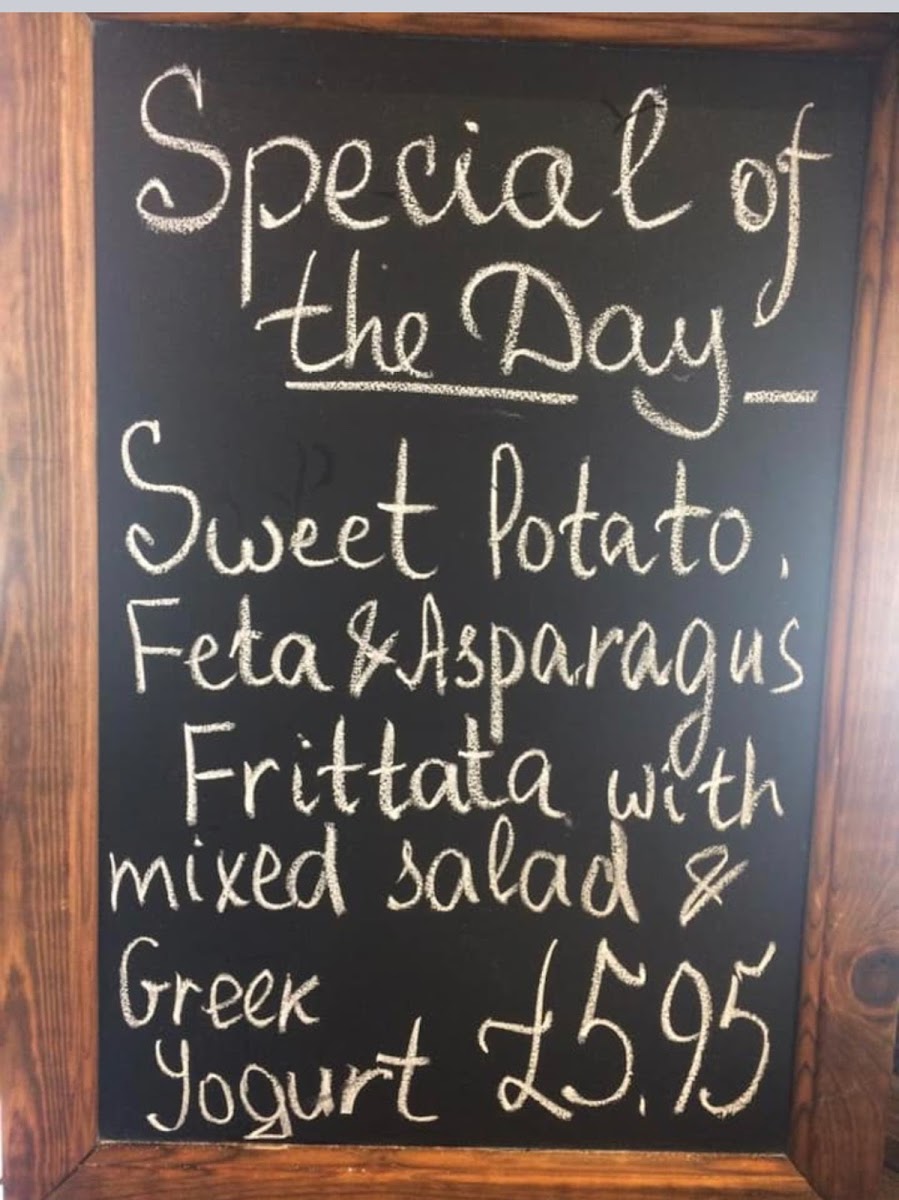 Special of
the Day
Sweet Potato,
Feta & Asparagus
Frittata with
mixed salad &
Greek
Yogurt £5.95